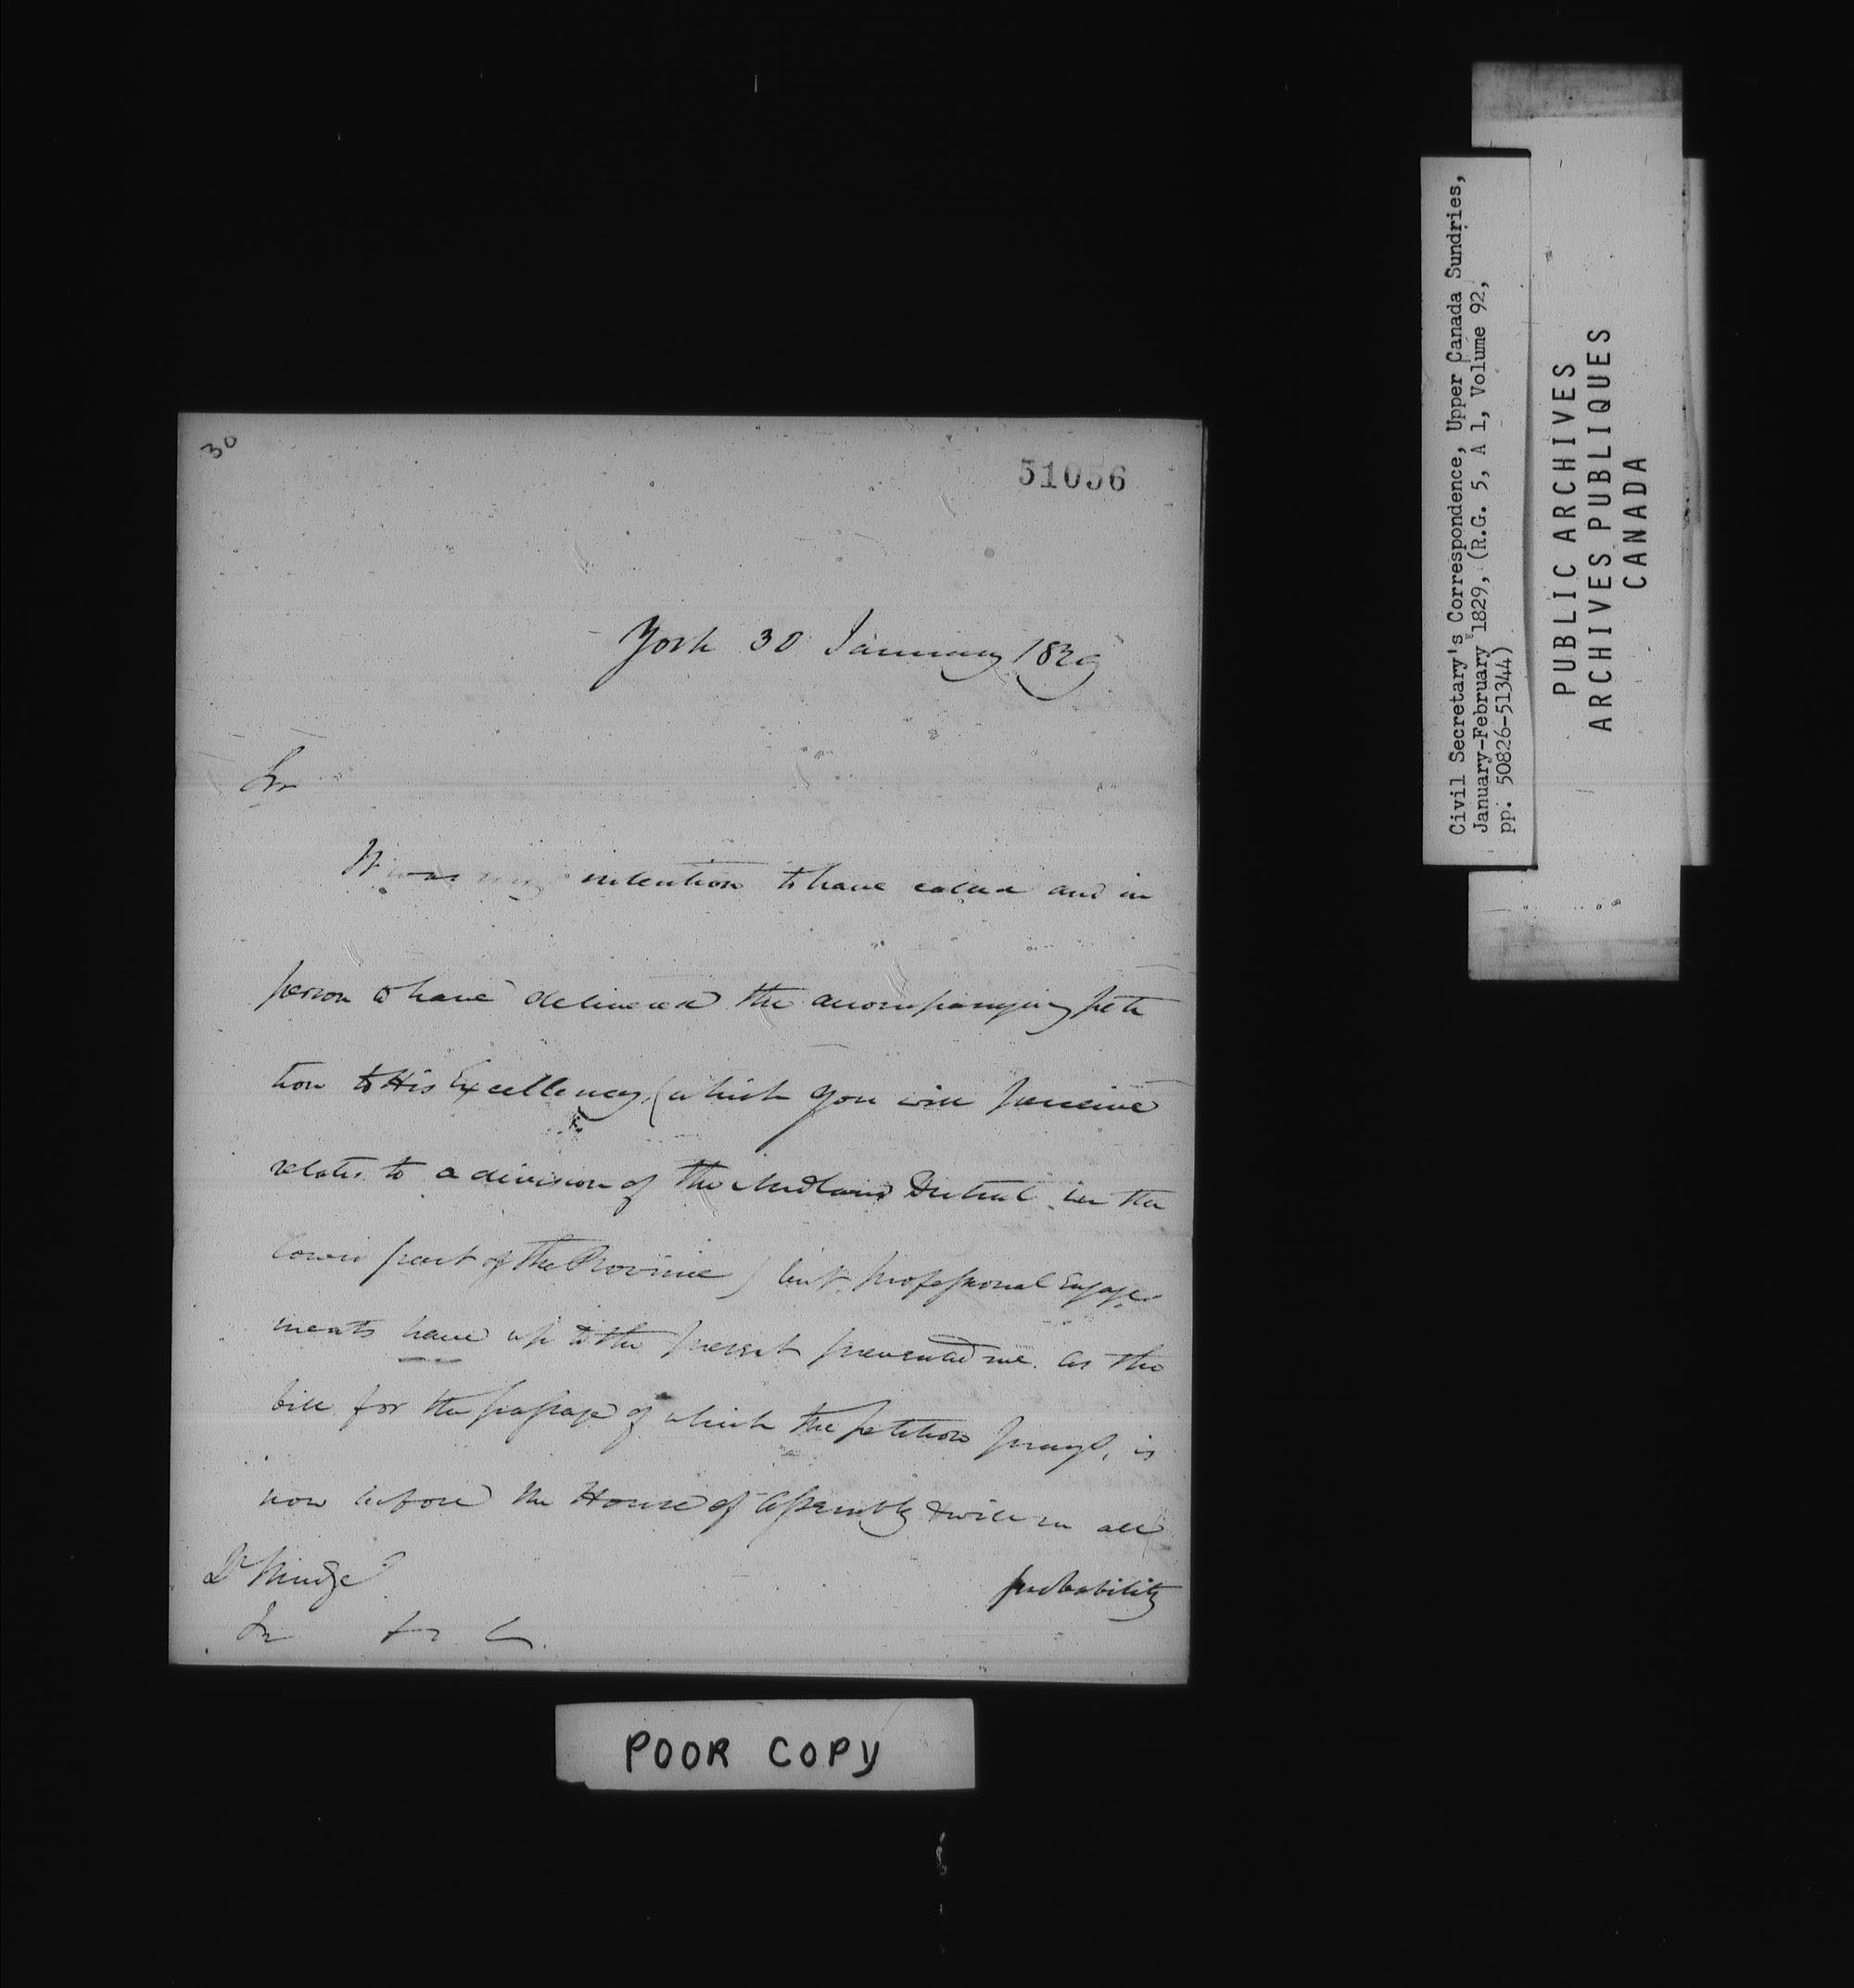 30
51056
York 30 January 1829
Sir
It was my intention to have called and in
person to have delivered the accompanying peti
tion to His Excellency, (which you will perceive
relates to a division of the Midland District in the
lower part of the Province) but professional Engage
ments have up to the present prevented me. As the
bill for the passage of which the petition prays, is
now before the House of Assembly & will in all
probability
Dr Mudge
POOR COPY
Civil Secretary's Correspondence, Upper Canada Sundries,
January-February 1829, (R.G. 5, A 1, Volume 92,
pp. 50826-51344)
PUBLIC ARCHIVES
ARCHIVES PUBLIQUES
CANADA